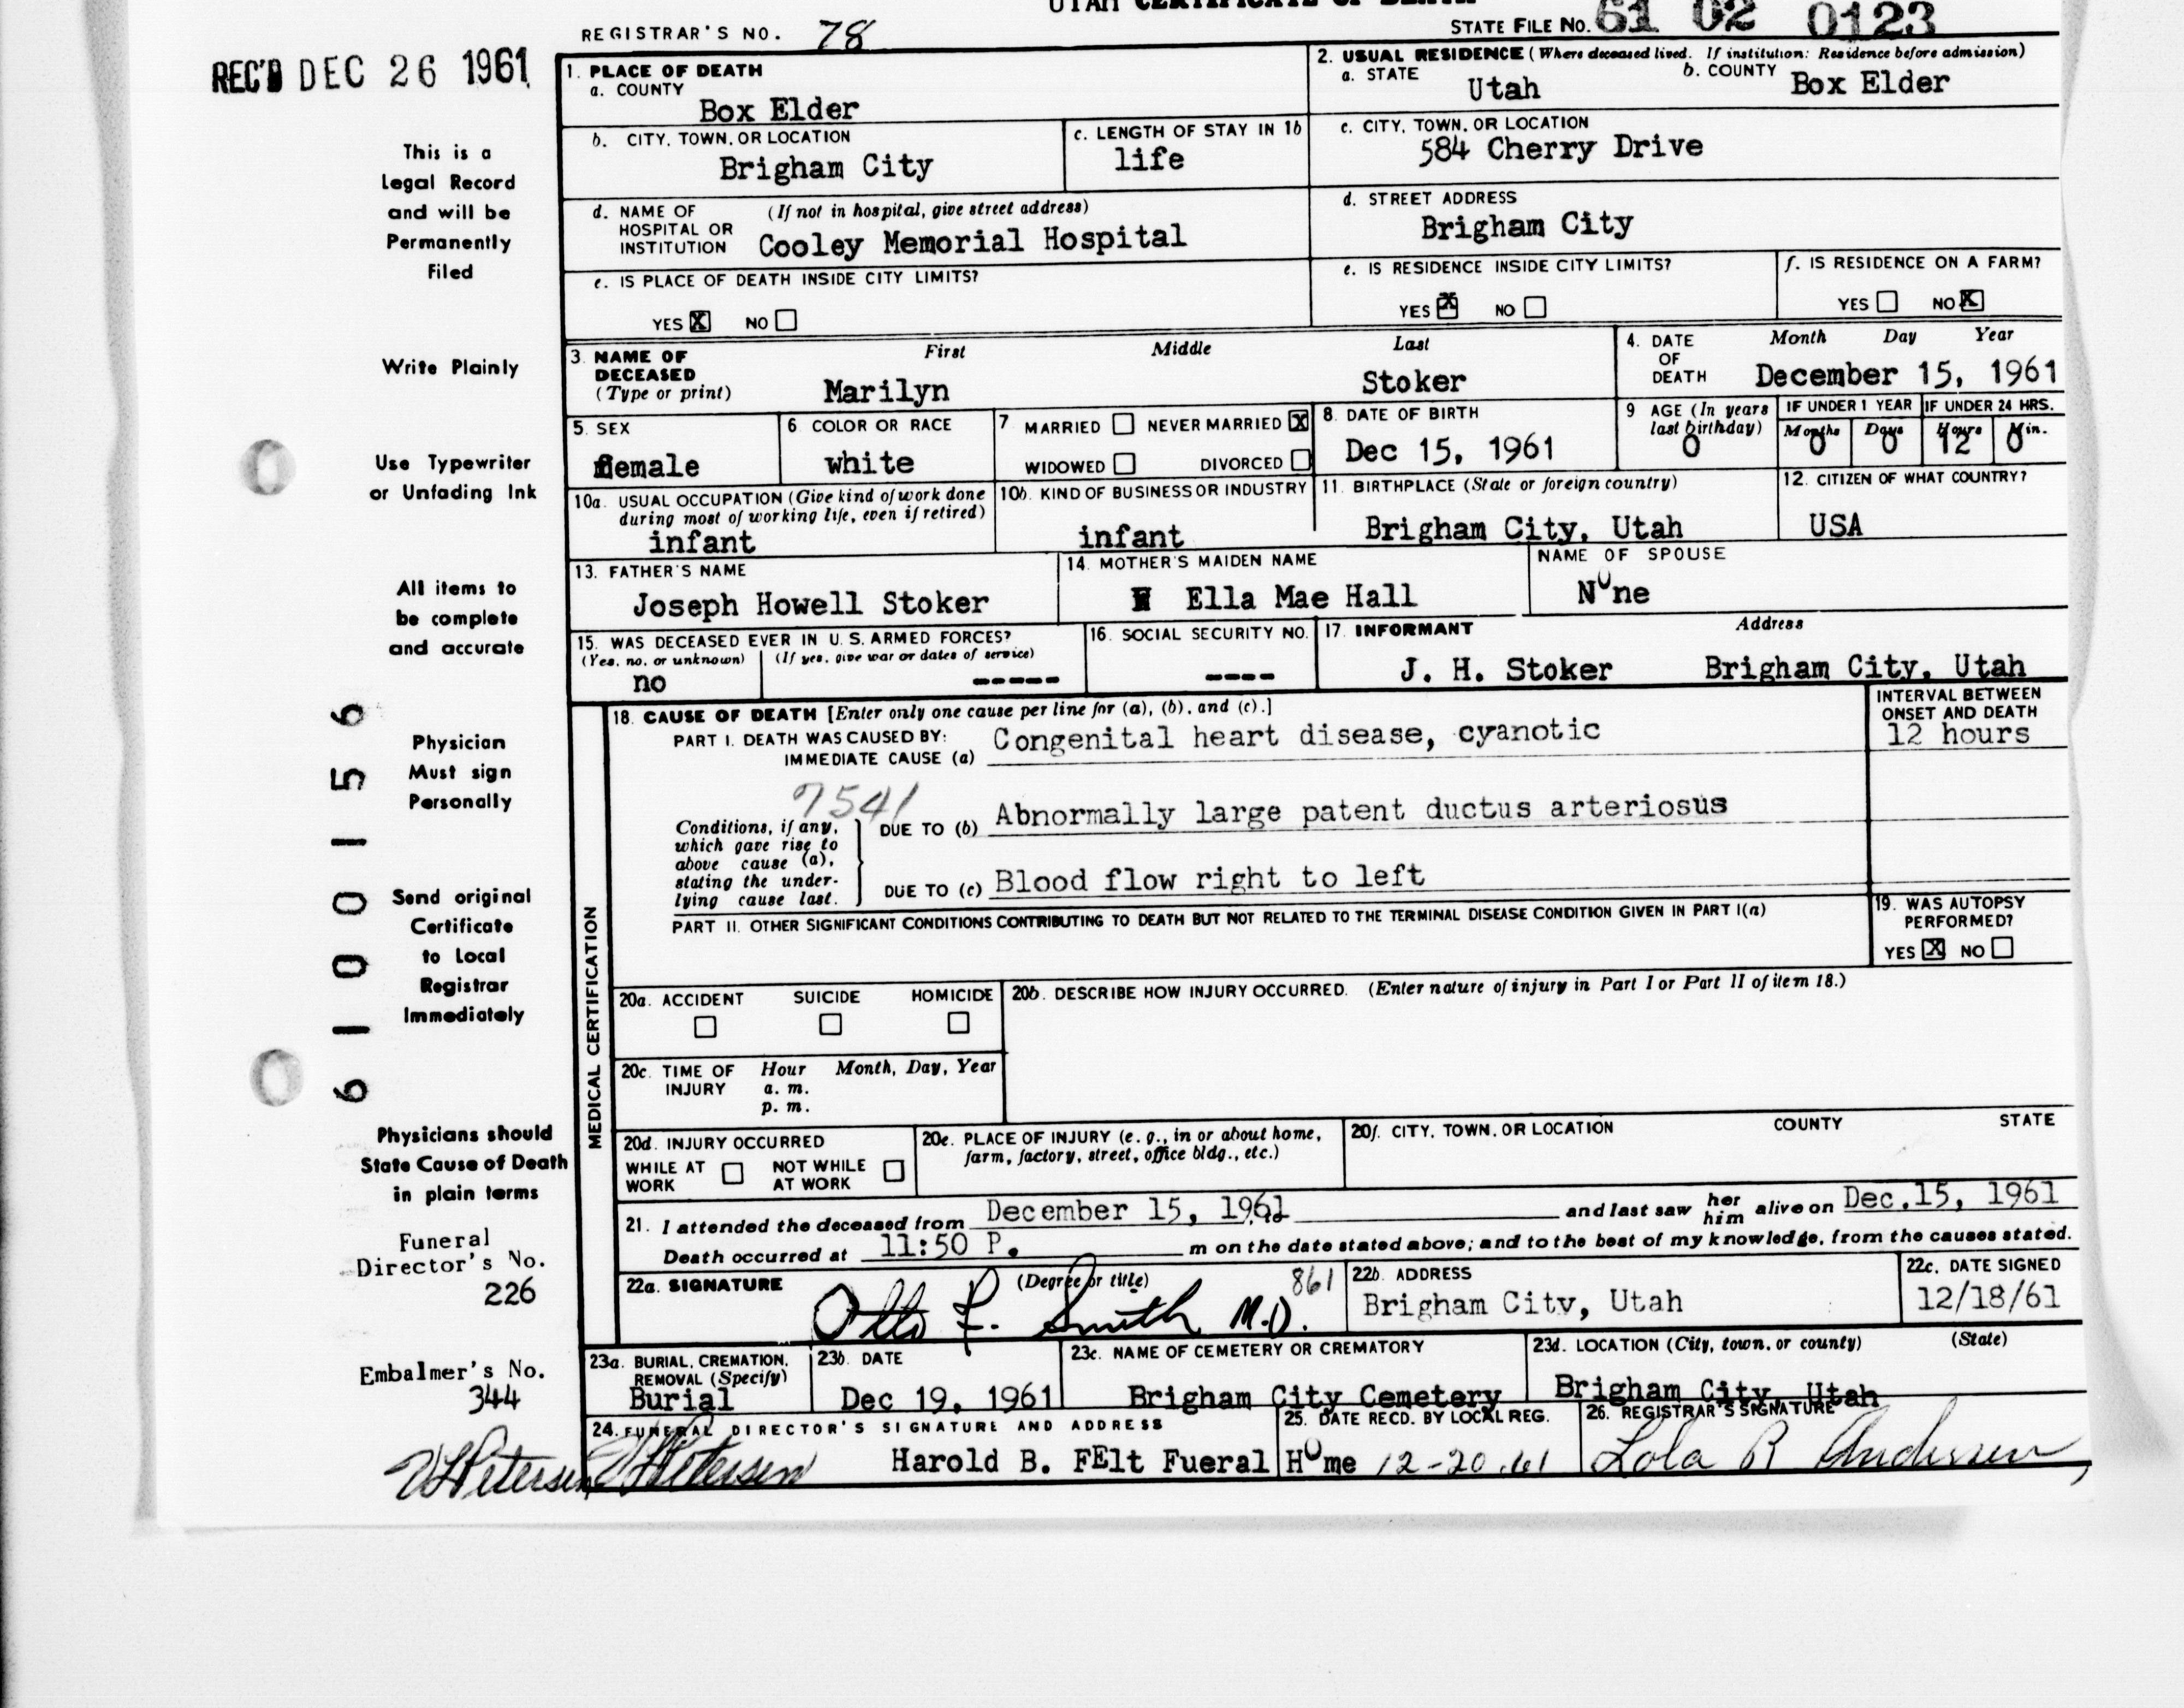 UTAH CERTIFICATE OF DEATH
REGISTRAR'S NO. 78
STATE FILE NO. 61 02 0123
REC'D DEC 26 1961
This is a
Legal Record
and will be
Permanently
Filed
Write Plainly
Use Typewriter
or Unfading Ink
All items to
be complete
and accurate
Physician
Must sign
Personally
Send original
Certificate
to Local
Registrar
Immediately
Physicians should
State Cause of Death
in plain terms
Funeral
Director's No.
226
Embalmer's No.
344
6 1 0 0 1 5 6
1. PLACE OF DEATH
a. COUNTY
Box Elder
2. USUAL RESIDENCE (Where deceased lived. If institution: Residence before admission)
a. STATE Utah
b. COUNTY Box Elder
b. CITY, TOWN, OR LOCATION
Brigham City
c. LENGTH OF STAY IN 1b
life
c. CITY, TOWN, OR LOCATION
584 Cherry Drive
d. NAME OF HOSPITAL OR INSTITUTION (If not in hospital, give street address)
Cooley Memorial Hospital
d. STREET ADDRESS
Brigham City
e. IS PLACE OF DEATH INSIDE CITY LIMITS?
YES X NO
e. IS RESIDENCE INSIDE CITY LIMITS?
YES X NO
f. IS RESIDENCE ON A FARM?
YES NO X
3. NAME OF DECEASED (Type or print)
First Middle Last
Marilyn Stoker
4. DATE OF DEATH
Month Day Year
December 15, 1961
5. SEX
female
6. COLOR OR RACE
white
7. MARRIED NEVER MARRIED X
WIDOWED DIVORCED
8. DATE OF BIRTH
Dec 15, 1961
9 AGE (In years last birthday)
0
IF UNDER 1 YEAR IF UNDER 24 HRS.
Months Days Hours Min.
0 0 12 0
10a. USUAL OCCUPATION (Give kind of work done during most of working life, even if retired)
infant
10b. KIND OF BUSINESS OR INDUSTRY
infant
11. BIRTHPLACE (State or foreign country)
Brigham City, Utah
12. CITIZEN OF WHAT COUNTRY?
USA
13. FATHER'S NAME
Joseph Howell Stoker
14. MOTHER'S MAIDEN NAME
Ella Mae Hall
NAME OF SPOUSE
None
15. WAS DECEASED EVER IN U. S. ARMED FORCES?
(Yes, no, or unknown) (If yes, give war or dates of service)
no -----
16. SOCIAL SECURITY NO.
----
17. INFORMANT Address
J. H. Stoker Brigham City, Utah
MEDICAL CERTIFICATION
18. CAUSE OF DEATH [Enter only one cause per line for (a), (b), and (c).]
INTERVAL BETWEEN ONSET AND DEATH
PART I. DEATH WAS CAUSED BY:
IMMEDIATE CAUSE (a) Congenital heart disease, cyanotic
12 hours
7541
Conditions, if any, which gave rise to above cause (a), stating the underlying cause last.
DUE TO (b) Abnormally large patent ductus arteriosus
DUE TO (c) Blood flow right to left
PART II. OTHER SIGNIFICANT CONDITIONS CONTRIBUTING TO DEATH BUT NOT RELATED TO THE TERMINAL DISEASE CONDITION GIVEN IN PART I(a)
19. WAS AUTOPSY PERFORMED?
YES X NO
20a. ACCIDENT SUICIDE HOMICIDE
20b. DESCRIBE HOW INJURY OCCURRED. (Enter nature of injury in Part I or Part II of item 18.)
20c. TIME OF INJURY Hour Month, Day, Year
a. m.
p. m.
20d. INJURY OCCURRED
WHILE AT WORK NOT WHILE AT WORK
20e. PLACE OF INJURY (e. g., in or about home, farm, factory, street, office bldg., etc.)
20f. CITY, TOWN, OR LOCATION COUNTY STATE
21. I attended the deceased from December 15, 1961 and last saw her him alive on Dec.15, 1961
Death occurred at 11:50 P. m on the date stated above; and to the best of my knowledge, from the causes stated.
22a. SIGNATURE (Degree or title) 861
Otto F. Smith M.D.
22b. ADDRESS
Brigham City, Utah
22c. DATE SIGNED
12/18/61
23a. BURIAL, CREMATION, REMOVAL (Specify)
Burial
23b. DATE
Dec 19, 1961
23c. NAME OF CEMETERY OR CREMATORY
Brigham City Cemetery
23d. LOCATION (City, town, or county) (State)
Brigham City, Utah
24. FUNERAL DIRECTOR'S SIGNATURE AND ADDRESS
Petersen Petersen Harold B. FElt Fueral Home
25. DATE RECD. BY LOCAL REG.
12-20.61
26. REGISTRAR'S SIGNATURE
Lola R Andersen